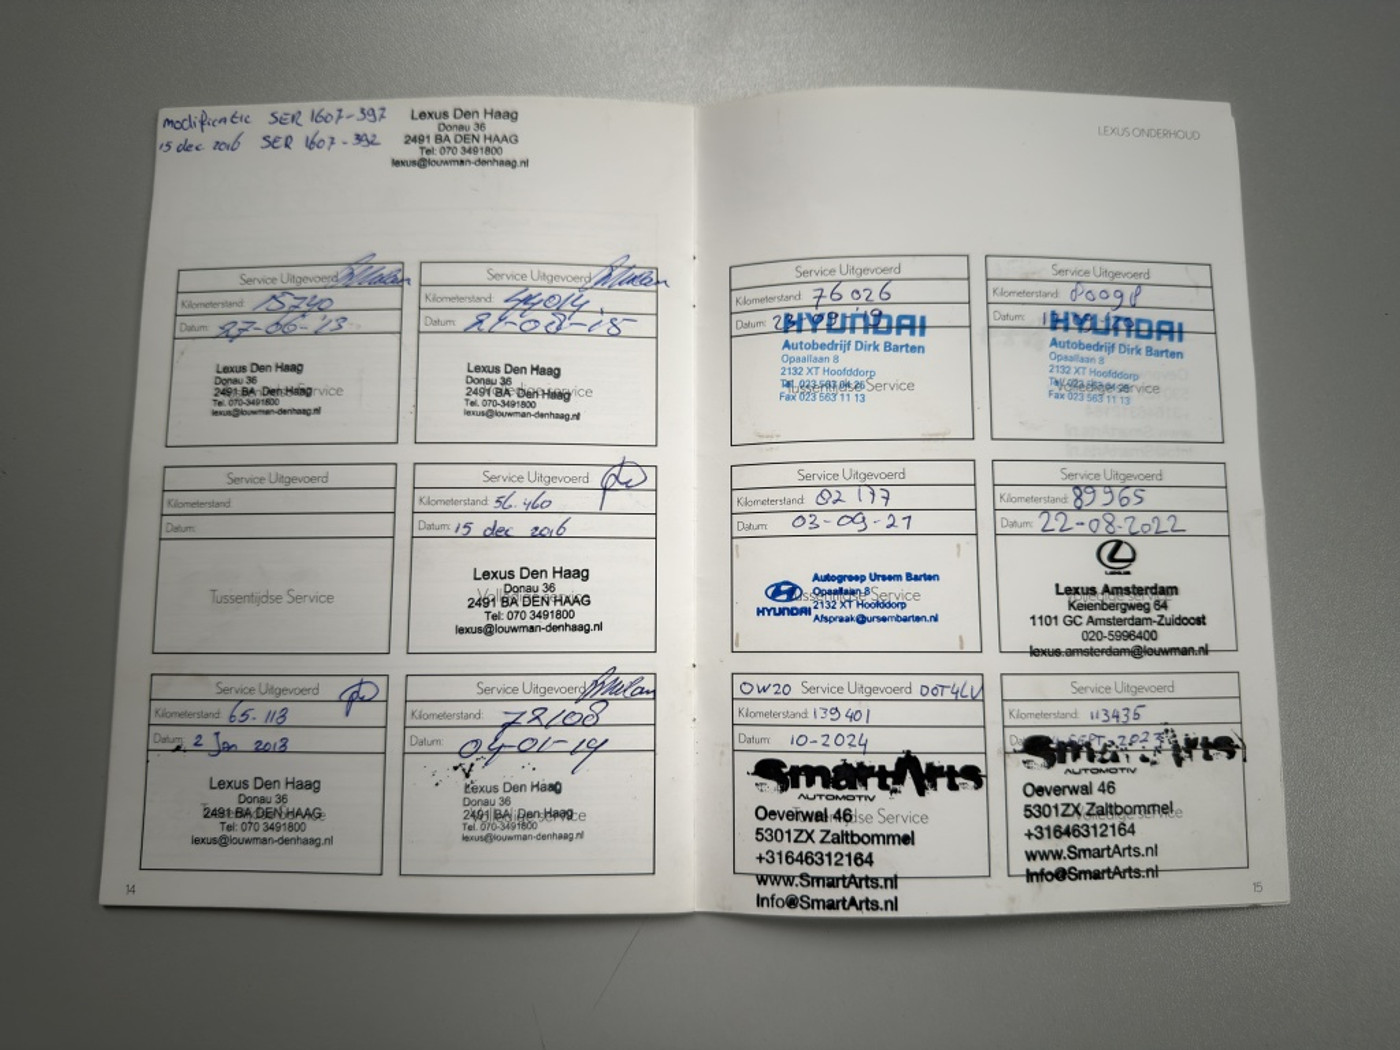 modificatie SER 1607-397
15 dec 2016 SER 1607-392
Lexus Den Haag
Donau 36
2491 BA DEN HAAG
Tel: 070 3491800
lexus@louwman-denhaag.nl
Service Uitgevoerd
Kilometerstand: 15740
Datum: 27-06-'13
Lexus Den Haag
Donau 36
2491 BA Den Haag
Tel. 070-3491800
lexus@louwman-denhaag.nl
Service
Service Uitgevoerd
Kilometerstand: 44014
Datum: 21-08-15
Lexus Den Haag
Donau 36
2491 BA Den Haag
Tel. 070-3491800
lexus@louwman-denhaag.nl
Volledige service
Service Uitgevoerd
Kilometerstand:
Datum:
Tussentijdse Service
Service Uitgevoerd
Kilometerstand: 56.460
Datum: 15 dec 2016
Lexus Den Haag
Donau 36
2491 BA DEN HAAG
Tel: 070 3491800
lexus@louwman-denhaag.nl
Volledige service
Service Uitgevoerd
Kilometerstand: 65.113
Datum: 2 Jan 2018
Lexus Den Haag
Donau 36
2491 BA DEN HAAG
Tel: 070 3491800
lexus@louwman-denhaag.nl
Service Uitgevoerd
Kilometerstand: 72108
Datum: 04-01-19
Lexus Den Haag
Donau 36
2491 BA Den Haag
Tel. 070-3491800
lexus@louwman-denhaag.nl
14
LEXUS ONDERHOUD
Service Uitgevoerd
Kilometerstand: 76026
Datum:
HYUNDAI
Autobedrijf Dirk Barten
Opaallaan 8
2132 XT Hoofddorp
Tel. 023 563 04 26
Fax 023 563 11 13
Tussentijdse Service
Service Uitgevoerd
Kilometerstand: 80098
Datum:
HYUNDAI
Autobedrijf Dirk Barten
Opaallaan 8
2132 XT Hoofddorp
Tel. 023 563 04 26
Fax 023 563 11 13
Volledige service
Service Uitgevoerd
Kilometerstand: 82177
Datum: 03-09-21
HYUNDAI
Autogroep Ursem Barten
Opaallaan 8
2132 XT Hoofddorp
Afspraak@ursembarten.nl
Tussentijdse Service
Service Uitgevoerd
Kilometerstand: 89965
Datum: 22-08-2022
LEXUS
Lexus Amsterdam
Keienbergweg 64
1101 GC Amsterdam-Zuidoost
020-5996400
lexus.amsterdam@louwman.nl
Volledige service
0W20 Service Uitgevoerd DOT4LV
Kilometerstand: 139401
Datum: 10-2024
SmartArts
AUTOMOTIV
Oeverwal 46
5301ZX Zaltbommel
+31646312164
www.SmartArts.nl
Info@SmartArts.nl
Tussentijdse Service
Service Uitgevoerd
Kilometerstand: 113435
SEPT-2023
SmartArts
AUTOMOTIV
Oeverwal 46
5301ZX Zaltbommel
+31646312164
www.SmartArts.nl
Info@SmartArts.nl
Volledige service
15